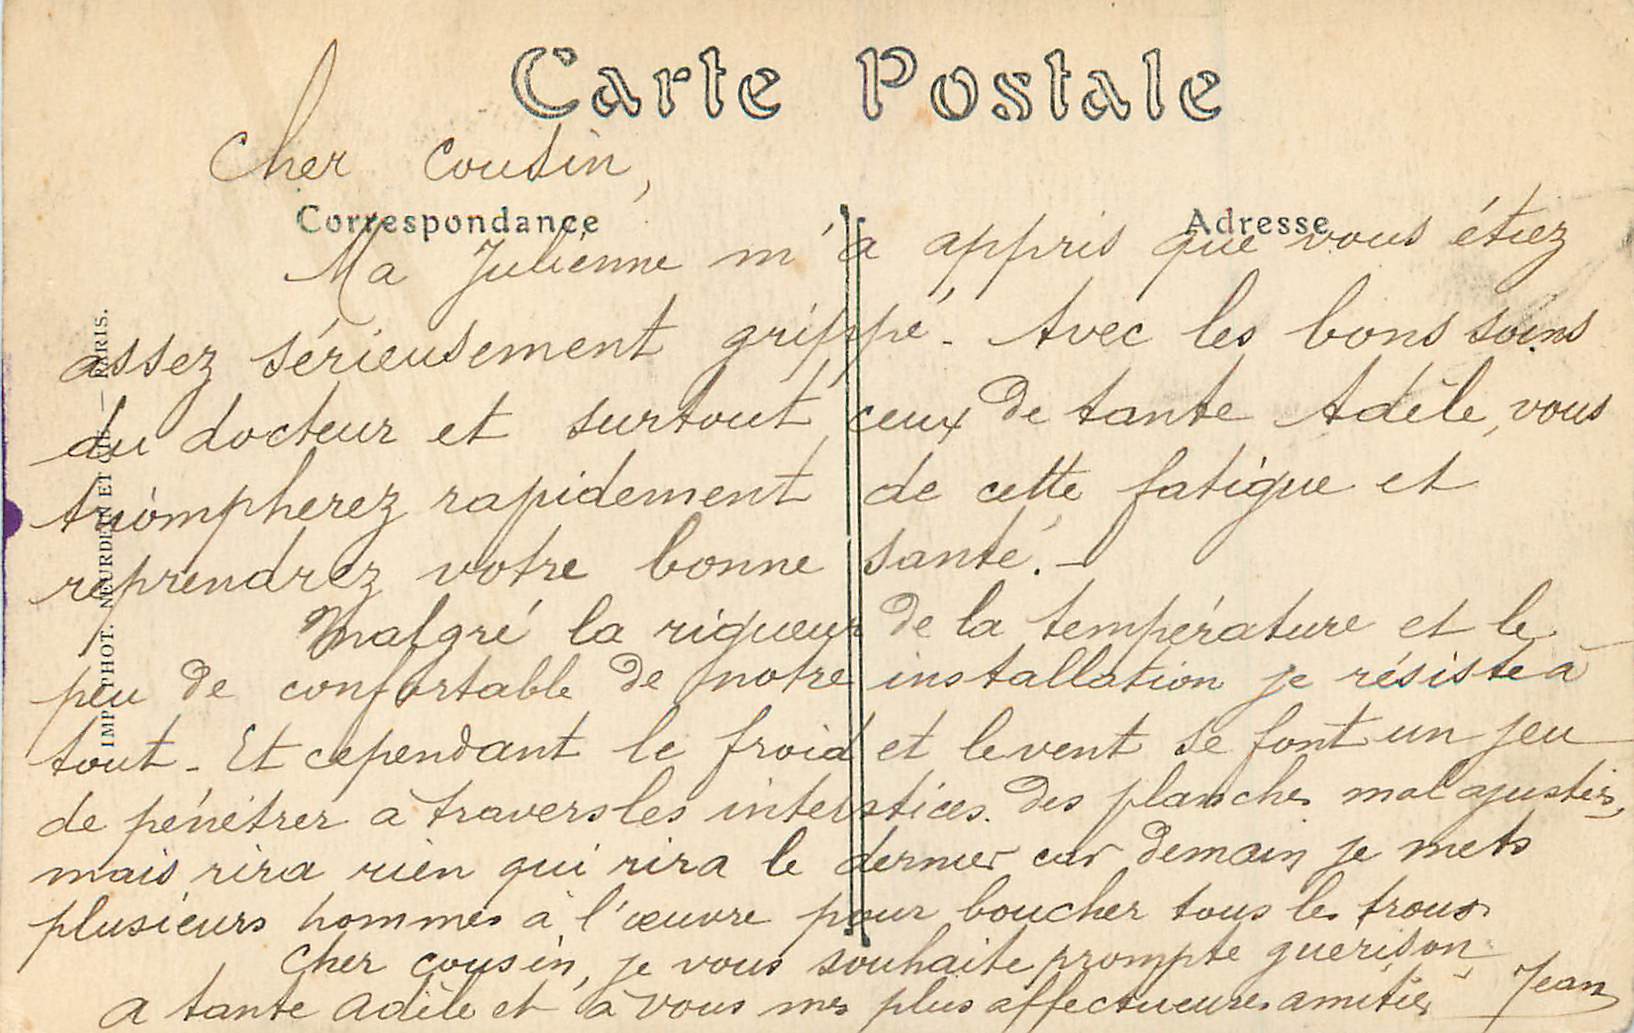 Carte Postale
Cher Cousin,
Correspondance
Adresse
Ma Julienne m'a appris que vous étiez
assez sérieusement grippé - Avec les bons soins
du docteur et surtout, ceux de tante Adèle, vous
triompherez rapidement de cette fatigue et
reprendrez votre bonne santé. -
Malgré la rigueur de la température et le
peu de confortable de notre installation je résiste à
tout - Et cependant le froid et le vent se font un jeu
de pénétrer à travers les interstices des planches mal ajustées,
mais rira rien qui rira le dernier car demain je mets
plusieurs hommes à l'œuvre pour boucher tous les trous
Cher cousin, je vous souhaite prompte guérison
A tante Adèle et à vous mes plus affectueuses amitiés Jean
IMP. PHOT. NEURDEIN ET CIE. — PARIS.